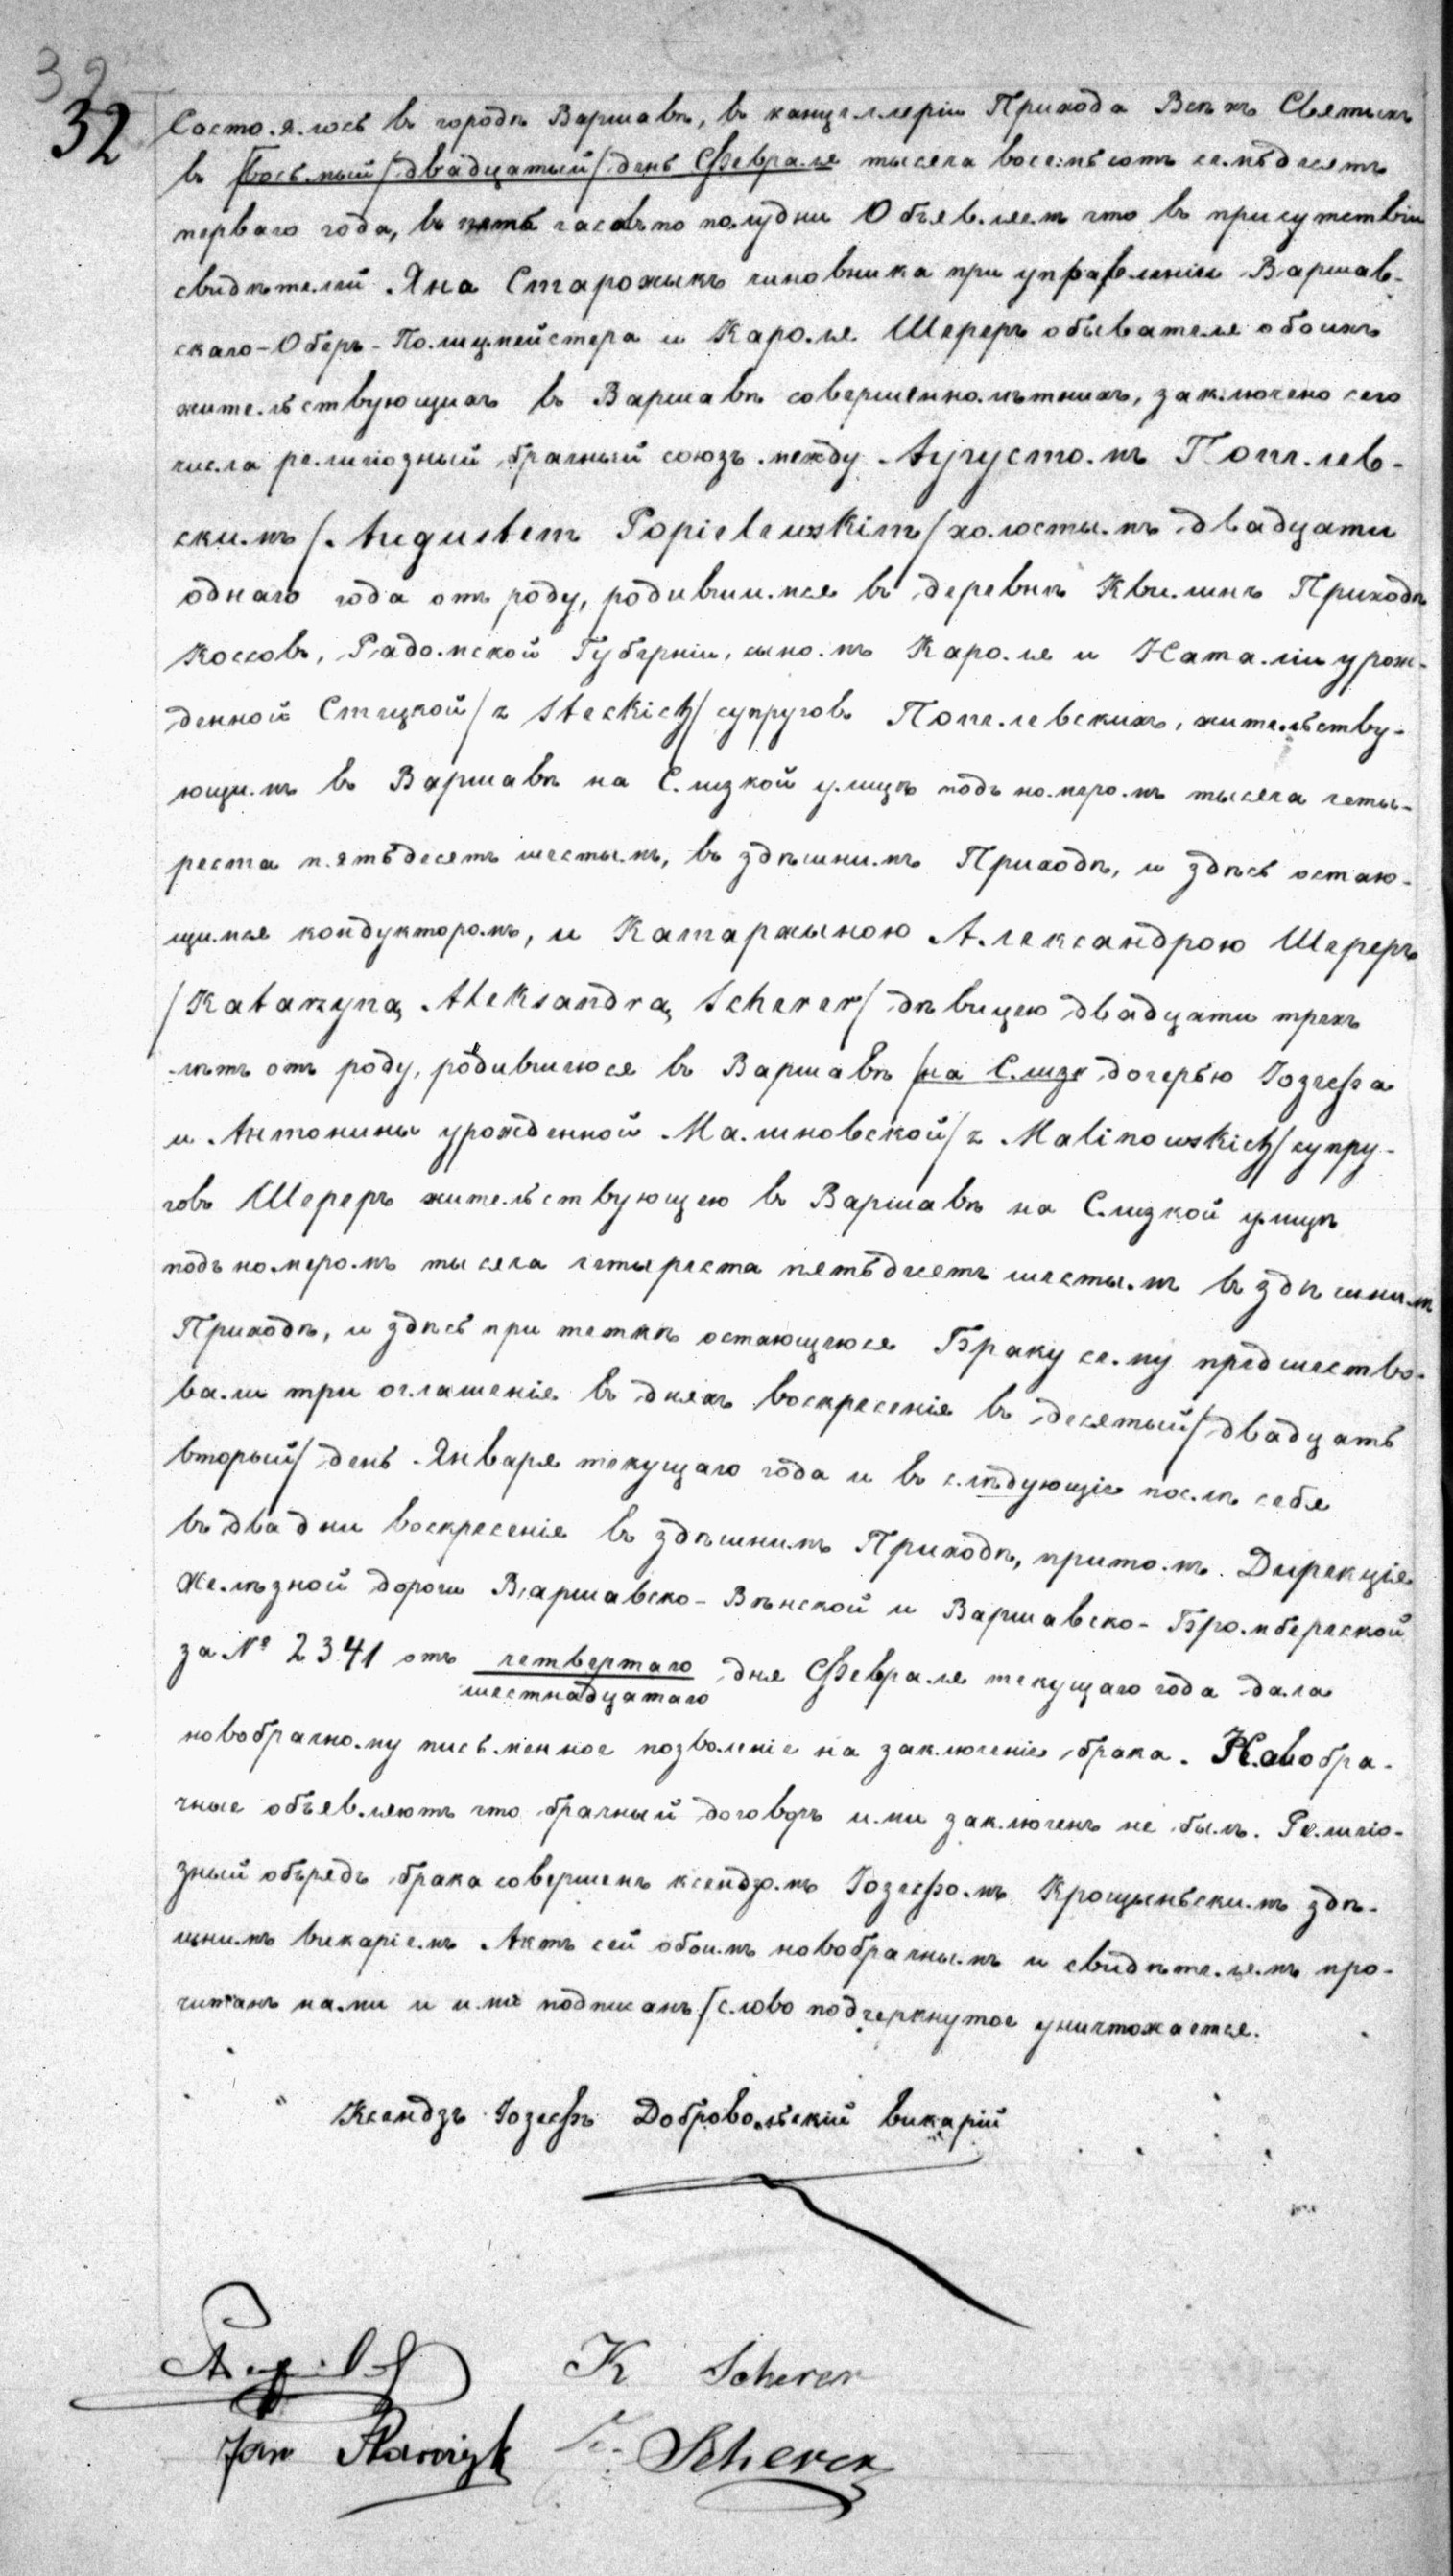 32
32
Состоялось въ городѣ Варшавѣ, въ канцеллеріи Прихода Всѣхъ Святыхъ
въ восьмый/двадцатый/день Февраля тысяча восемьсотъ семьдесятъ
перваго года, въ пять часовъ по полудни Объявляемъ что въ присутствіи
свидѣтелей Яна Старожыкъ чиновника при управленіи Варшав-
скаго-Оберъ-Полицмейстера и Кароля Шереръ обывателя обоихъ
жительствующихъ въ Варшавѣ совершеннолѣтнихъ, заключено сего
числа религіозный брачный союзъ между Аугустомъ Попелев-
скимъ/Augustem Popielewskim/холостымъ двадцати
однаго года отъ роду, родившимся въ деревнѣ Квилинъ Приходѣ
Коссовъ, Радомской Губерніи, сыномъ Кароля и Наталіи урож-
денной Стецкой/z Steckich/супруговъ Попелевскихъ, жительству-
ющимъ въ Варшавѣ на Слизкой улицѣ подъ номеромъ тысяча четы-
реста пятьдесятъ шестымъ, въ здѣшнимъ Приходѣ, и здѣсь остаю-
щимся кондукторомъ, и Катаржыною Александрою Шереръ
/Katarzyną Aleksandrą Scherer/дѣвицею двадцати трехъ
лѣтъ отъ роду, родившеюся въ Варшавѣ /на Слизк дочерью Іозефа
и Антонины урожденной Малиновской/z Malinowskich/супру-
говъ Шереръ жительствующею въ Варшавѣ на Слизкой улицѣ
подъ номеромъ тысяча четыреста пятьдесятъ шестымъ въ здѣшнимъ
Приходѣ, и здѣсь при теткѣ остающеюся Браку сему предшество-
вали три оглашенія въ дняхъ воскресенія въ десятый/двадцать
вторый/день Января текущаго года и въ слѣдующіе послѣ себя
въ два дни воскресенія въ здѣшнимъ Приходѣ, притомъ Дирекція
Желѣзной дороги Варшавско-Вѣнской и Варшавско-Бромбергской
за № 2341 отъ четвертаго дня Февраля текущаго года дала
шестнадцатаго
новобрачному письменное позволеніе на заключеніе брака. Новобра-
чные объявляютъ что брачный договоръ ими заключенъ не былъ. Религіо-
зный обрядъ брака совершенъ ксендзомъ Іозефомъ Крощыньскимъ здѣ-
шнимъ викаріемъ Актъ сей обоимъ новобрачнымъ и свидѣтелямъ про-
читанъ нами и ими подписанъ/слово подчеркнутое уничтожается.
Ксендзъ Іозефъ Добровольскій викарій
K Scherer
Jan Starożyk Scherer